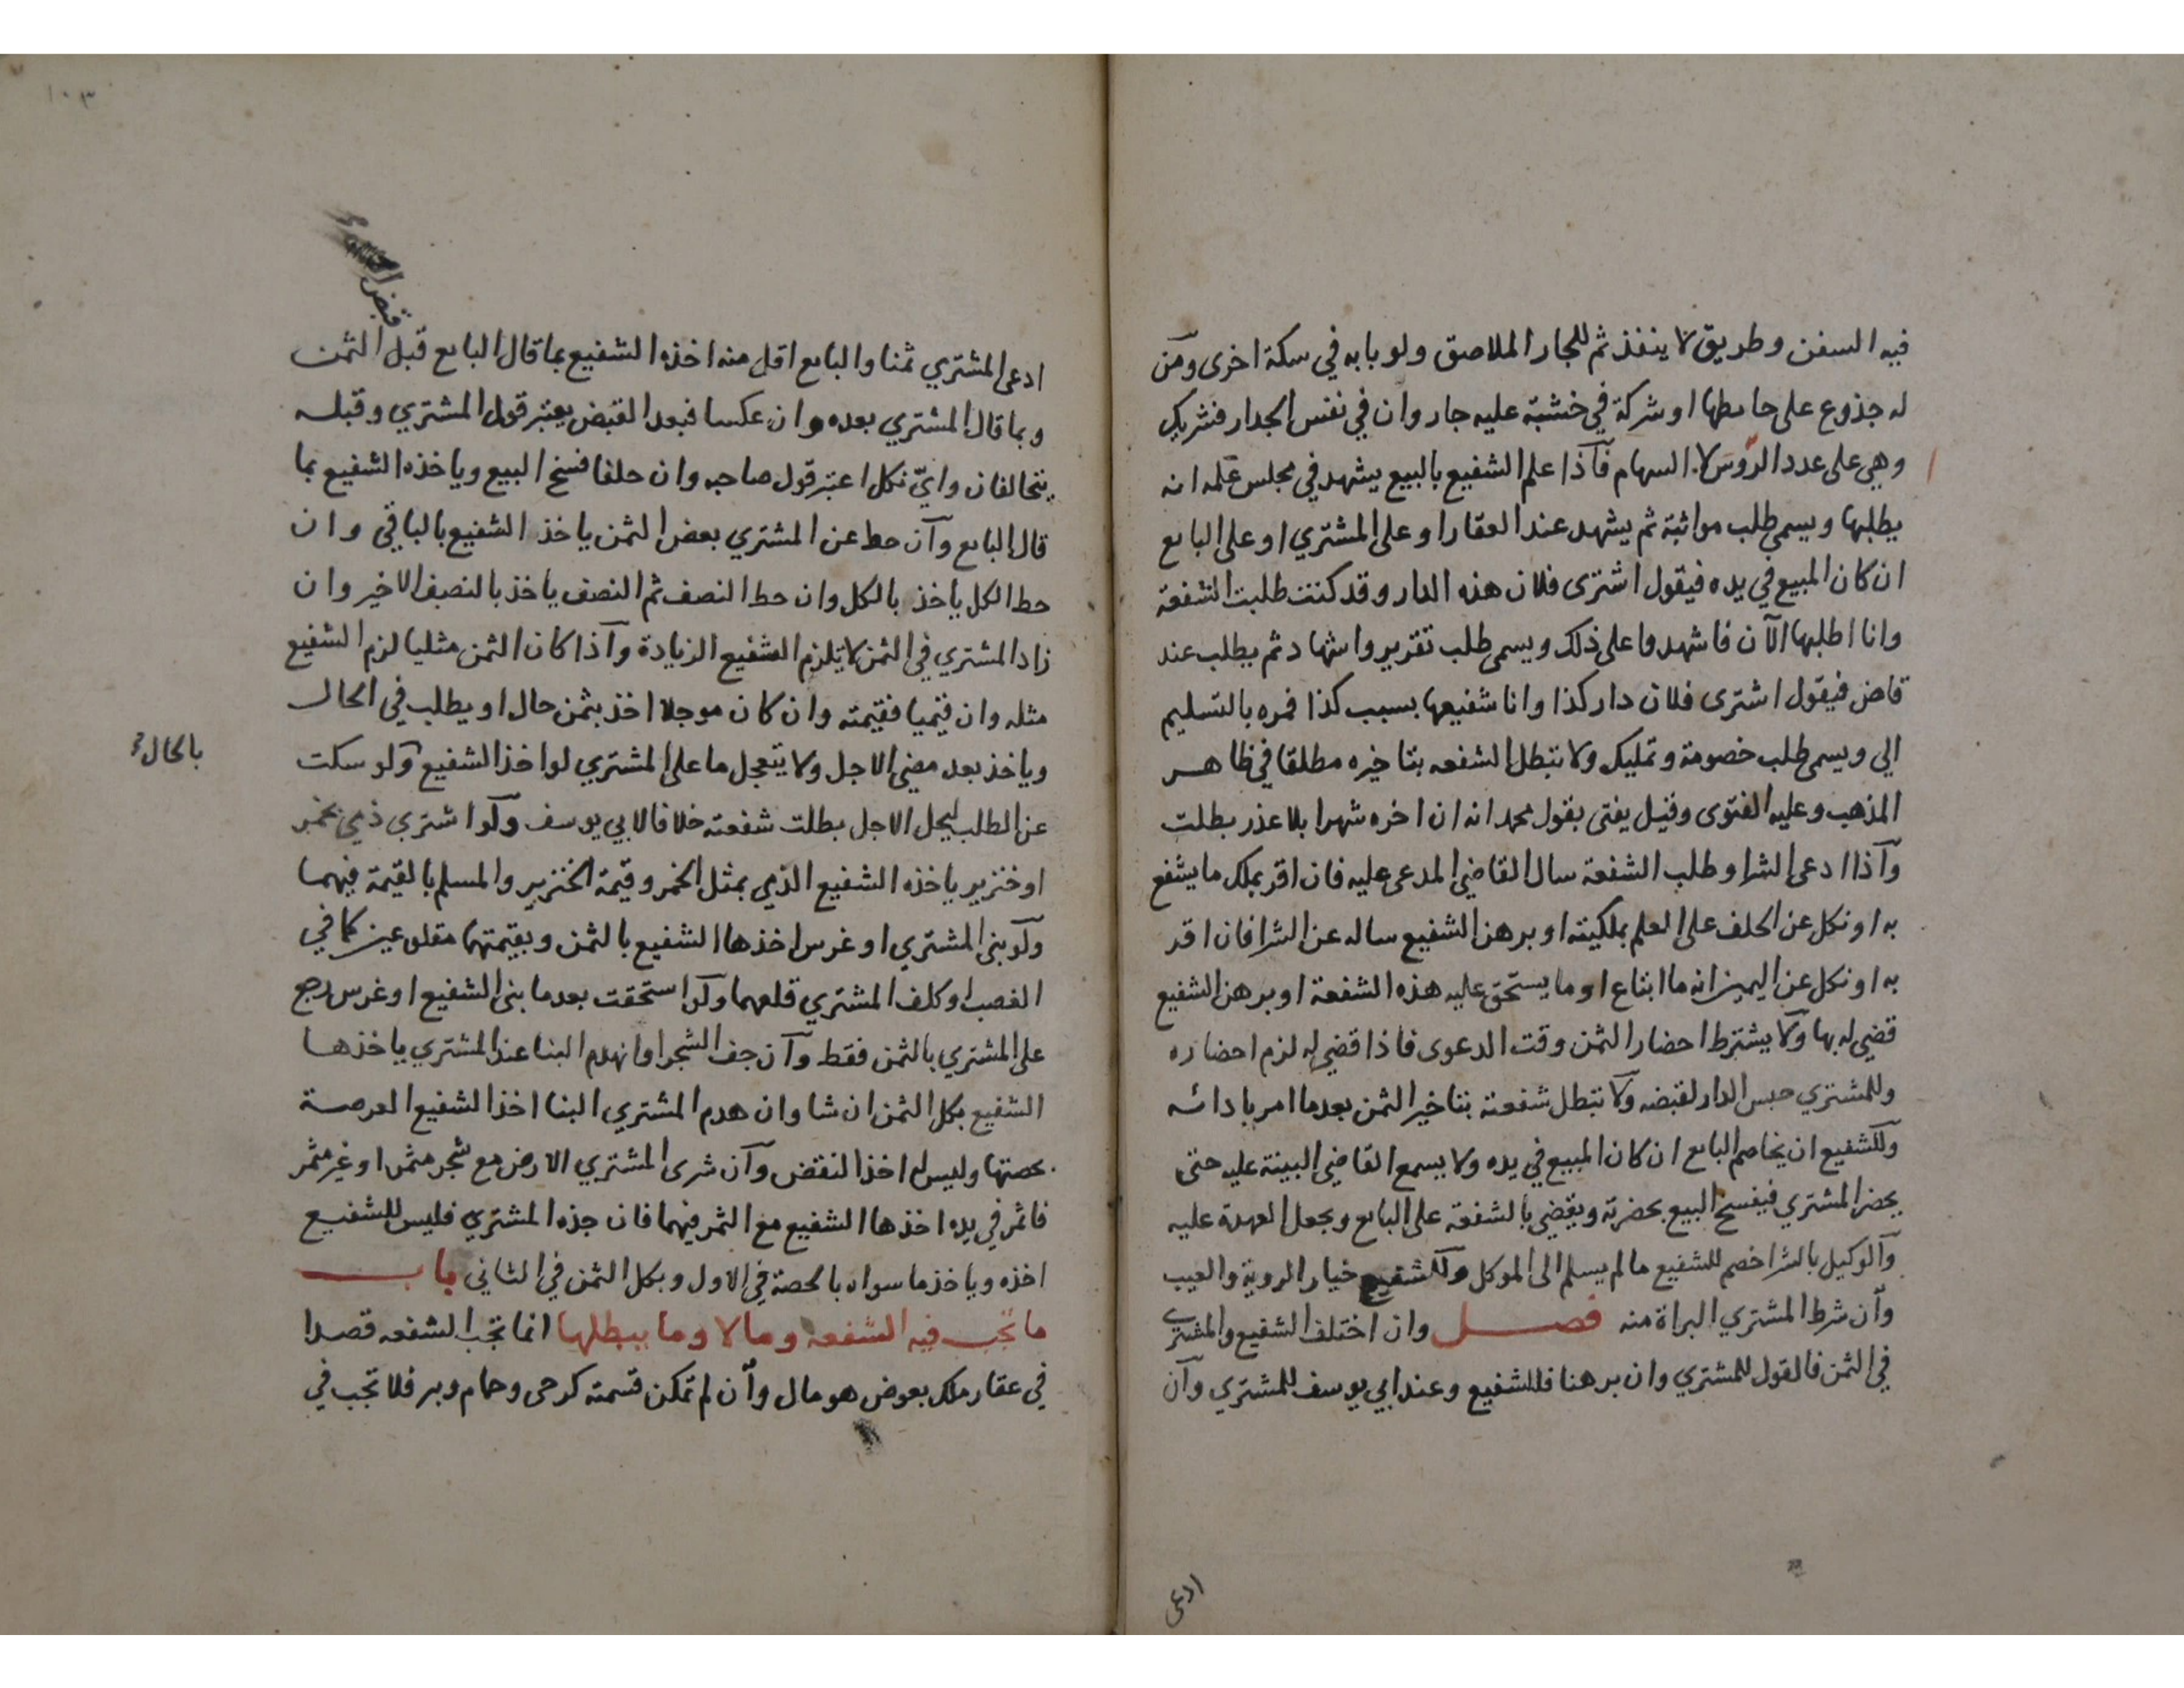 فيه السفن وطريق لا ينفذ ثم للجار الملاصق ولو بابه في سكة اخرى ومن
له جذوع على حايطها او شركة في خشبة عليه جار وان في نفس الجدار فشريك
وهي على عدد الروس لا السهام فاذا علم الشفيع بالبيع يشهد في مجلس علمه انه
يطلبها ويسمى طلب مواثبة ثم يشهد عند العقار او على المشتري او على البايع
ان كان المبيع في يده فيقول اشترى فلان هذه الدار وقد كنت طلبت الشفعة
وانا اطلبها الآن فاشهدوا على ذلك ويسمى طلب تقرير واشهاد ثم يطلب عند
قاض فيقول اشترى فلان دار كذا وانا شفيعها بسبب كذا فمره بالتسليم
الي ويسمى طلب خصومة وتمليك ولا تبطل الشفعه بتاخيره مطلقا في ظاهر
المذهب وعليه الفتوى وقيل يفتى بقول محمد انه ان اخره شهرا بلا عذر بطلت
وآذا ادعى الشرا وطلب الشفعة سال القاضي المدعى عليه فان اقر بملك ما يشفع
به او نكل عن الحلف على العلم بملكيته او برهن الشفيع ساله عن الشرا فان اقر
به او نكل عن اليمين انه ما ابتاع او ما يستحق عليه هذه الشفعة او برهن الشفيع
قضي له بها ولا يشترط احضار الثمن وقت الدعوى فاذا قضي له لزم احضاره
وللمشتري حبس الدار لقبضه ولا تبطل شفعته بتاخير الثمن بعد ما امر بادائه
وللشفيع ان يخاصم البايع ان كان المبيع في يده ولا يسمع القاضي البينة عليه حتى
يحضر المشتري فيفسخ البيع بحضرته ويقضي بالشفعة على البايع ويجعل العهدة عليه
وآلوكيل بالشرا خصم للشفيع ما لم يسلم الى الموكل وللشفيع خيار الروية والعيب
وآن شرط المشتري البراة منه فصل وان اختلف الشفيع والمشتري
في الثمن فالقول للمشتري وان برهنا فللشفيع وعند ابي يوسف للمشتري وآن
ادعى
١٠٣
قبض
ادعى المشتري ثمنا والبايع اقل منه اخذه الشفيع بما قال البايع قبل الثمن
وبما قال المشتري بعده وان عكسا فبعد القبض يعتبر قول المشتري وقبله
يتحالفان وايّ نكل اعتبر قول صاحبه وان حلفا فسخ البيع وياخذه الشفيع بما
قال البايع وآن حط عن المشتري بعض الثمن ياخذ الشفيع بالباقي وان
حط الكل ياخذ بالكل وان حط النصف ثم النصف ياخذ بالنصف الاخير وان
زاد المشتري في الثمن لا يلزم الشفيع الزيادة وآذا كان الثمن مثليا لزم الشفيع
مثله وان قيميا فقيمته وان كان موجلا اخذ بثمن حال او يطلب في الحال
بالحال
وياخذ بعد مضي الاجل ولا يتعجل ما على المشتري لو اخذ الشفيع ولو سكت
عن الطلب ليحل الاجل بطلت شفعته خلافا لابي يوسف ولو اشترى ذمي بخمر
او خنزير ياخذه الشفيع الذمي بمثل الخمر وقيمة الخنزير والمسلم بالقيمة فيهما
ولو بنى المشتري او غرس اخذها الشفيع بالثمن وبقيمتهما مقلوعين كما في
الغصب او كلف المشتري قلعهما ولو استحقت بعد ما بنى الشفيع او غرس رجع
على المشتري بالثمن فقط وآن جف الشجر او انهدم البنا عند المشتري ياخذها
الشفيع بكل الثمن ان شا وان هدم المشتري البنا اخذ الشفيع العرصة
بحصتها وليس له اخذ النقض وآن شرى المشتري الارض مع شجر مثمر او غير مثمر
فاثمر في يده اخذها الشفيع مع الثمر فيهما فان جذه المشتري فليس للشفيع
اخذه وياخذ ما سواه بالحصة في الاول وبكل الثمن في الثاني باب
ما تجب فيه الشفعه وما لا وما يبطلها انما تجب الشفعه قصدا
في عقار ملك بعوض هو مال وآن لم تمكن قسمته كرحى وحمام وبر فلا تجب في